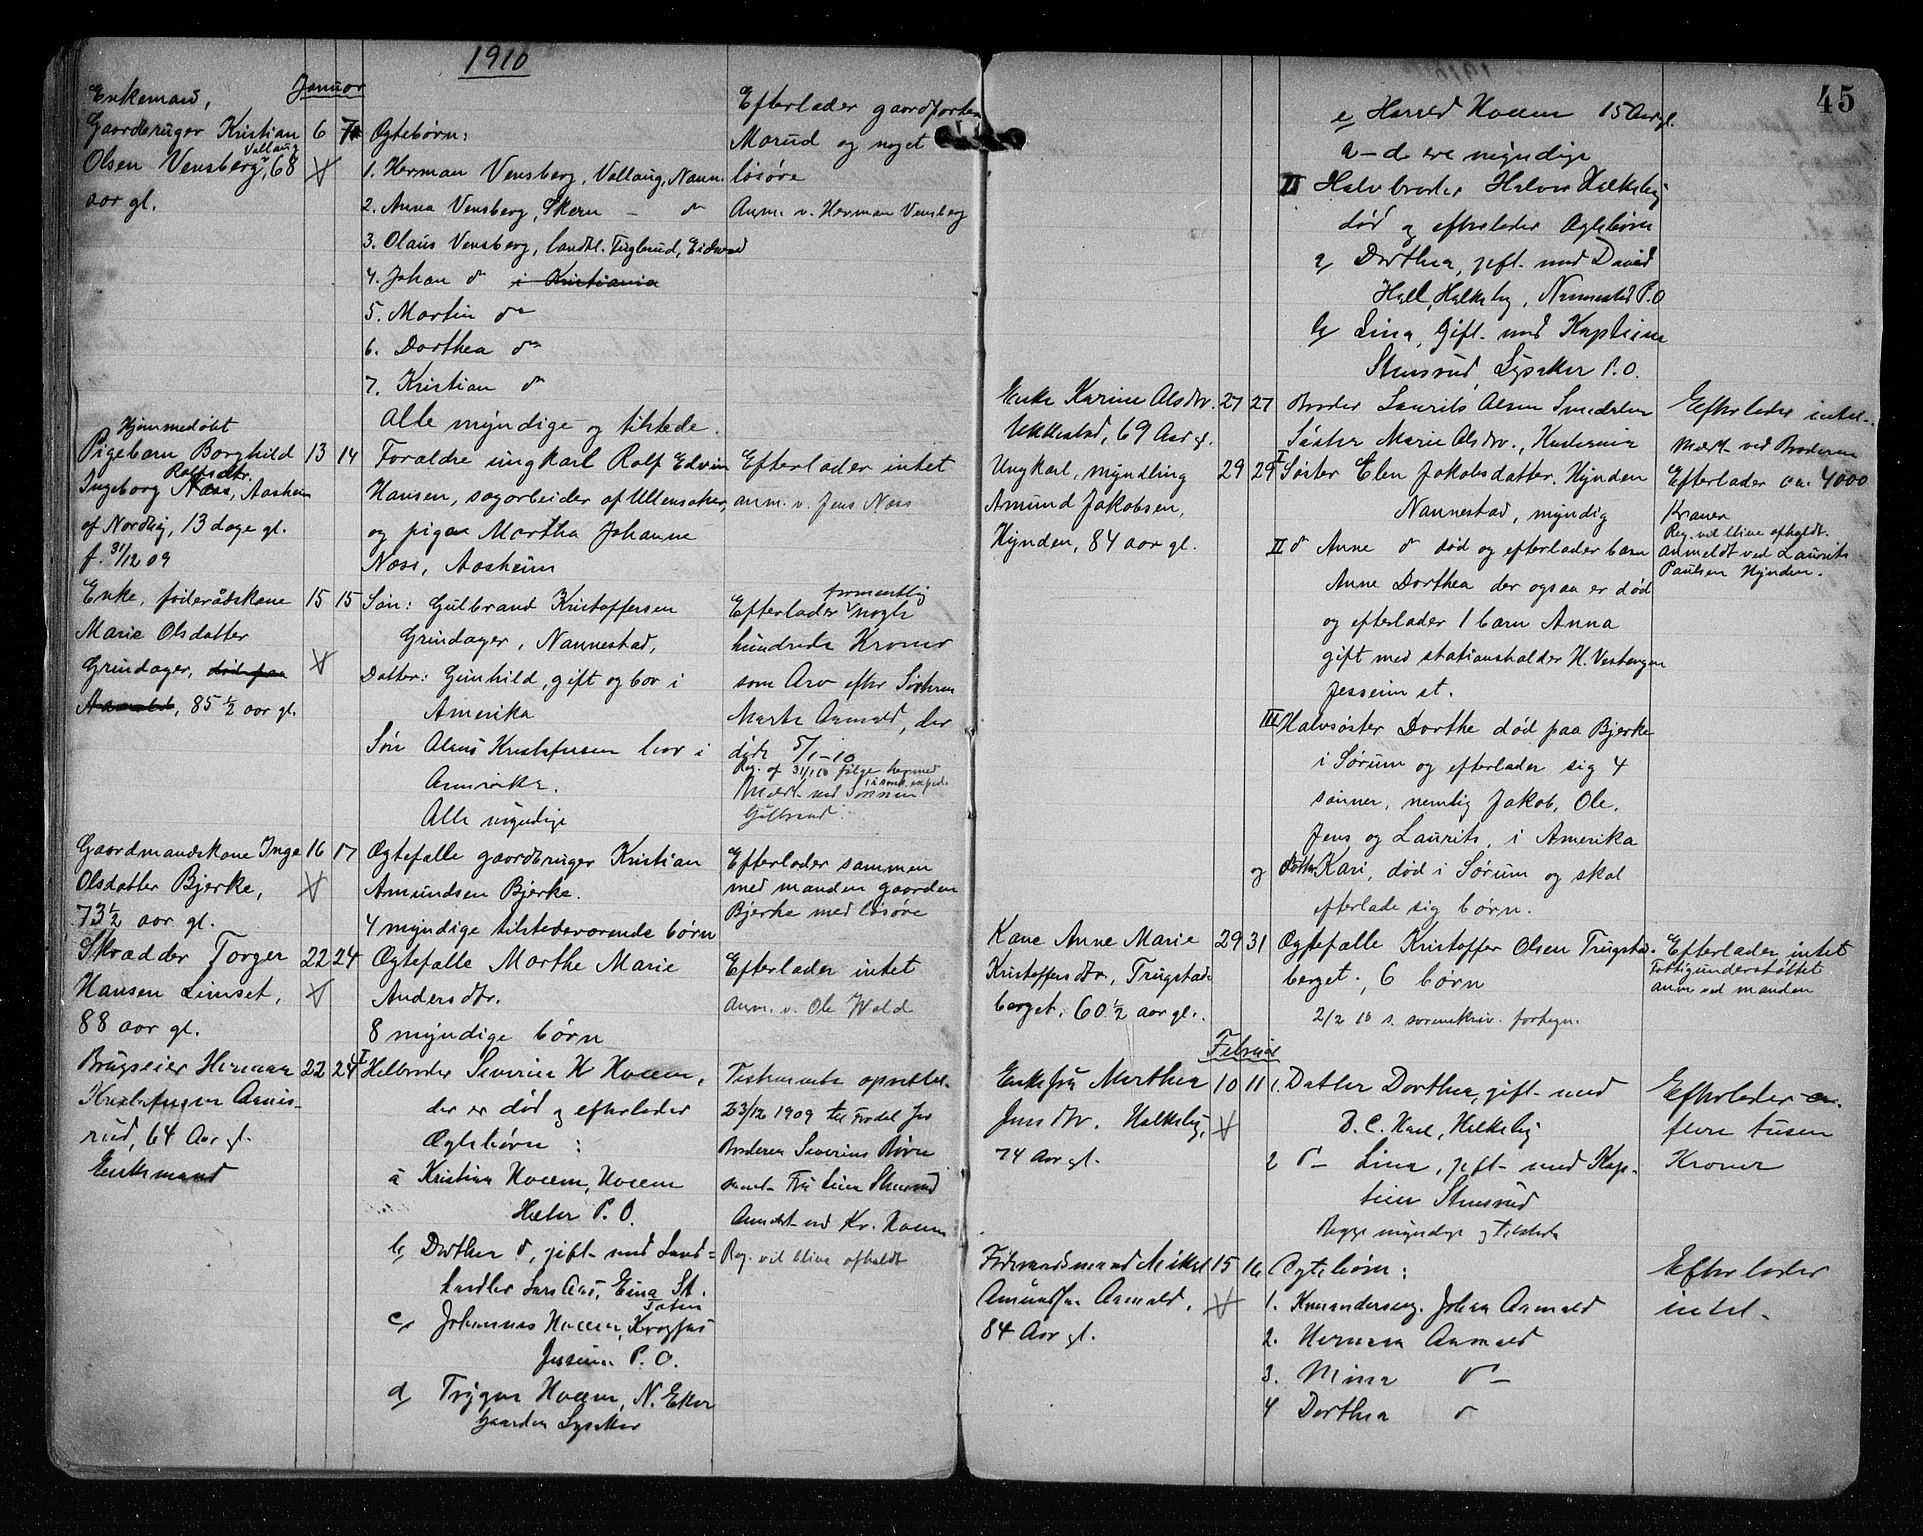 1910
Januar
Enkemand,
Gaardbruger Kristian
Vallaug
Olsen Vensberg, 68
aar gl.
6 7
Ægtebørn:
1. Herman Vensberg, Vallaug, Nann.
2. Anna Vensberg, Skern — do
3. Olaus Vensberg, landhl. Fuglerud, Eidsvold
4. Johan do i Kristiania
5. Martin do
6. Dorthea do
7. Kristian do
Alle myndige og tilstede.
Efterlader gaardparten
Marud og noget
løsøre
Anm. v. Herman Vensberg
Hjemmedøbt
Pigebarn Borghild
Rolfsdtr.
Ingeborg Næss, Aasheim
af Nordby, 13 dage gl.
f. 31/12 09
13 14
Forældre ungkarl Rolf Edvin
Hansen, sagarbeider af Ullensaker,
og pigen Martha Johanne
Næss, Aasheim
Efterlader intet
anm. v. Jens Næss
Enke, føderådskone
Marie Olsdatter
Grindager, død paa
Aamold, 85 1/2 aar gl.
15 15
Søn: Gulbrand Kristoffersen
Grindager, Nannestad,
Datter: Gunhild, gift og bor i
Amerika
Søn Olaus Kristofersen bor i
Amerika.
Alle myndige
formentlig
Efterlader nogle
hundrede Kroner
som Arv efter Søsteren
Marte Aamold, der
døde 5/1-10
Reg. af 31/1 10 følge hermed
Mældt ved Sønnen
Gulbrand.
Gaardmandskone Inge
Olsdatter Bjerke,
73 1/2 aar gl.
16 17
Ægtefælle gaardbruger Kristian
Amundsen Bjerke.
4 myndige tilstedeværende børn
Efterlader sammen
med manden gaarden
Bjerke med løsøre
Skrædder Torger
Hansen Limset,
88 aar gl.
22 24
Ægtefælle Marthe Marie
Andersdtr.
8 myndige børn
Efterlader intet
anm. v. Ole Wold
Brugseier Herman
Kristofersen Aamis-
rud, 64 Aar gl.
Enkemand
22 24
I Helbroder Severin K Hoem,
der er død og efterlader
Ægtebørn:
a Kristian Hoem, Hoem
Holter P.O.
b Dorthea do, gift med Land-
handler Lars Aas, Eina St.
Toten
c Johannes Hoem, Krogfus
Jessheim P.O.
d Trygve Hoem, N. Eker
Gaarden Lysaker
Testamente oprettet
23/12 1909 til Fordel for
Broderen Severins Børn
samt Fru Lina Stensrud
Anmeldt ved Kr. Hoem
Reg. vil blive afholdt
45
e Harald Hoem 15 Aar gl.
a-d ere myndige
II Halvbroder Halvor Halkeby
død og efterlader Ægtebørn
a Dorthea, gift med David
Hall, Halkeby, Nannestad P.O
b Lina, gift med Kaptein
Stensrud, Lysaker P.O.
Enke Karine Olsdtr.
Ukkestad, 69 Aar gl.
27 27
Broder Laurits Olsen Smedalen
Søster Marie Olsdtr.,
Efterlader intet
Mældt ved Broderen
Ungkarl, myndling
Amund Jakobsen,
Hynden, 84 aar gl.
29 29
I Søster Elen Jakobsdatter Hynden
Nannestad, myndig
II do Anne do død og efterlader barn
Anne Dorthea der ogsaa er død
og efterlader 1 barn Anna
gift med stationsholder H. Vestengen
Jessheim st.
III Halvsøster Dorthe død paa Bjerke
i Sørum og efterlader sig 4
sønner, nemlig Jakob, Ole,
Jens og Laurits, i Amerika
og datter Kari, død i Sørum og skal
efterlade sig børn.
Efterlader ca. 4000
Kroner
Reg. vil blive afholdt.
anmeldt ved Laurits
Paulsen Hynden.
Kone Anne Marie
Kristoffersdtr., Trugstad-
berget, 60 1/2 aar gl.
29 31
Ægtefælle Kristoffer Olsen Trugstad-
berget, 6 børn
2/2 10 s. sorenskriv. fortegn.
Efterlader intet
Fattigunderstøttet
anm ved manden
Februar
Enkefru Marthea
Jensdtr. Halkeby,
74 Aar gl.
10 11
1. Datter Dorthea, gift med
D. C. Hall, Halkeby
2 do — Lina, gift med Kap-
tein Stensrud
Begge myndige og tilstede
Efterlader
flere tusen
Kroner
Føderaadsmand Mikel
Amundsen Aamold,
84 Aar gl.
15 16
Ægtebørn:
1. Kommanderserg. Johan Aamold
2. Herman Aamold
3. Mina do —
4 Dorthea do
Efterlader
intet